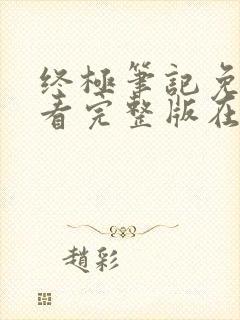 終極筆記免
看完整版在
趙彩